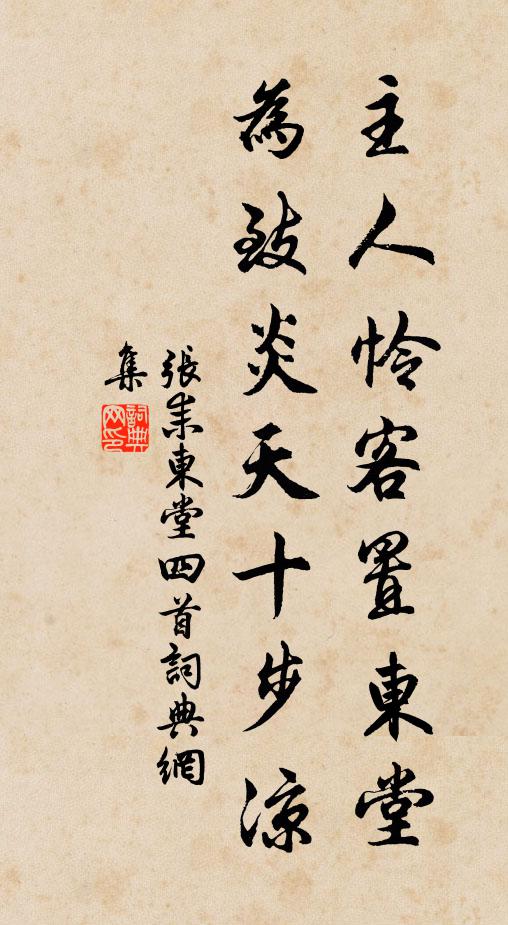 主人怜客置東堂
為致炎天十步涼
張耒東堂四首詞典網
集
詞典网印